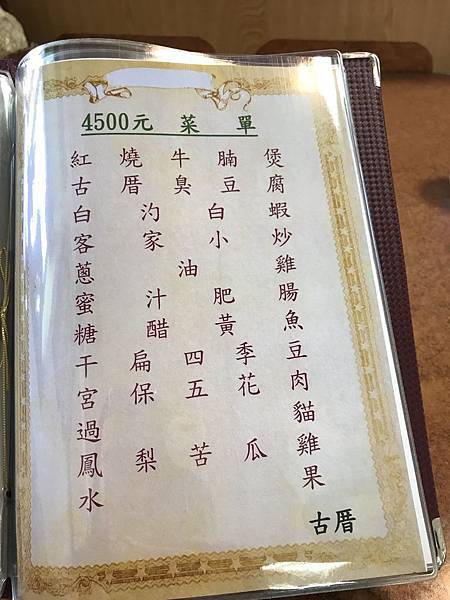 4500元 菜 單
紅燒牛腩煲
古厝臭豆腐
白汋白蝦
客家小炒
蔥油雞
蜜汁肥腸
糖醋黃魚
干扁四季豆
宮保五花肉
過貓
鳳梨苦瓜雞
水果
古厝